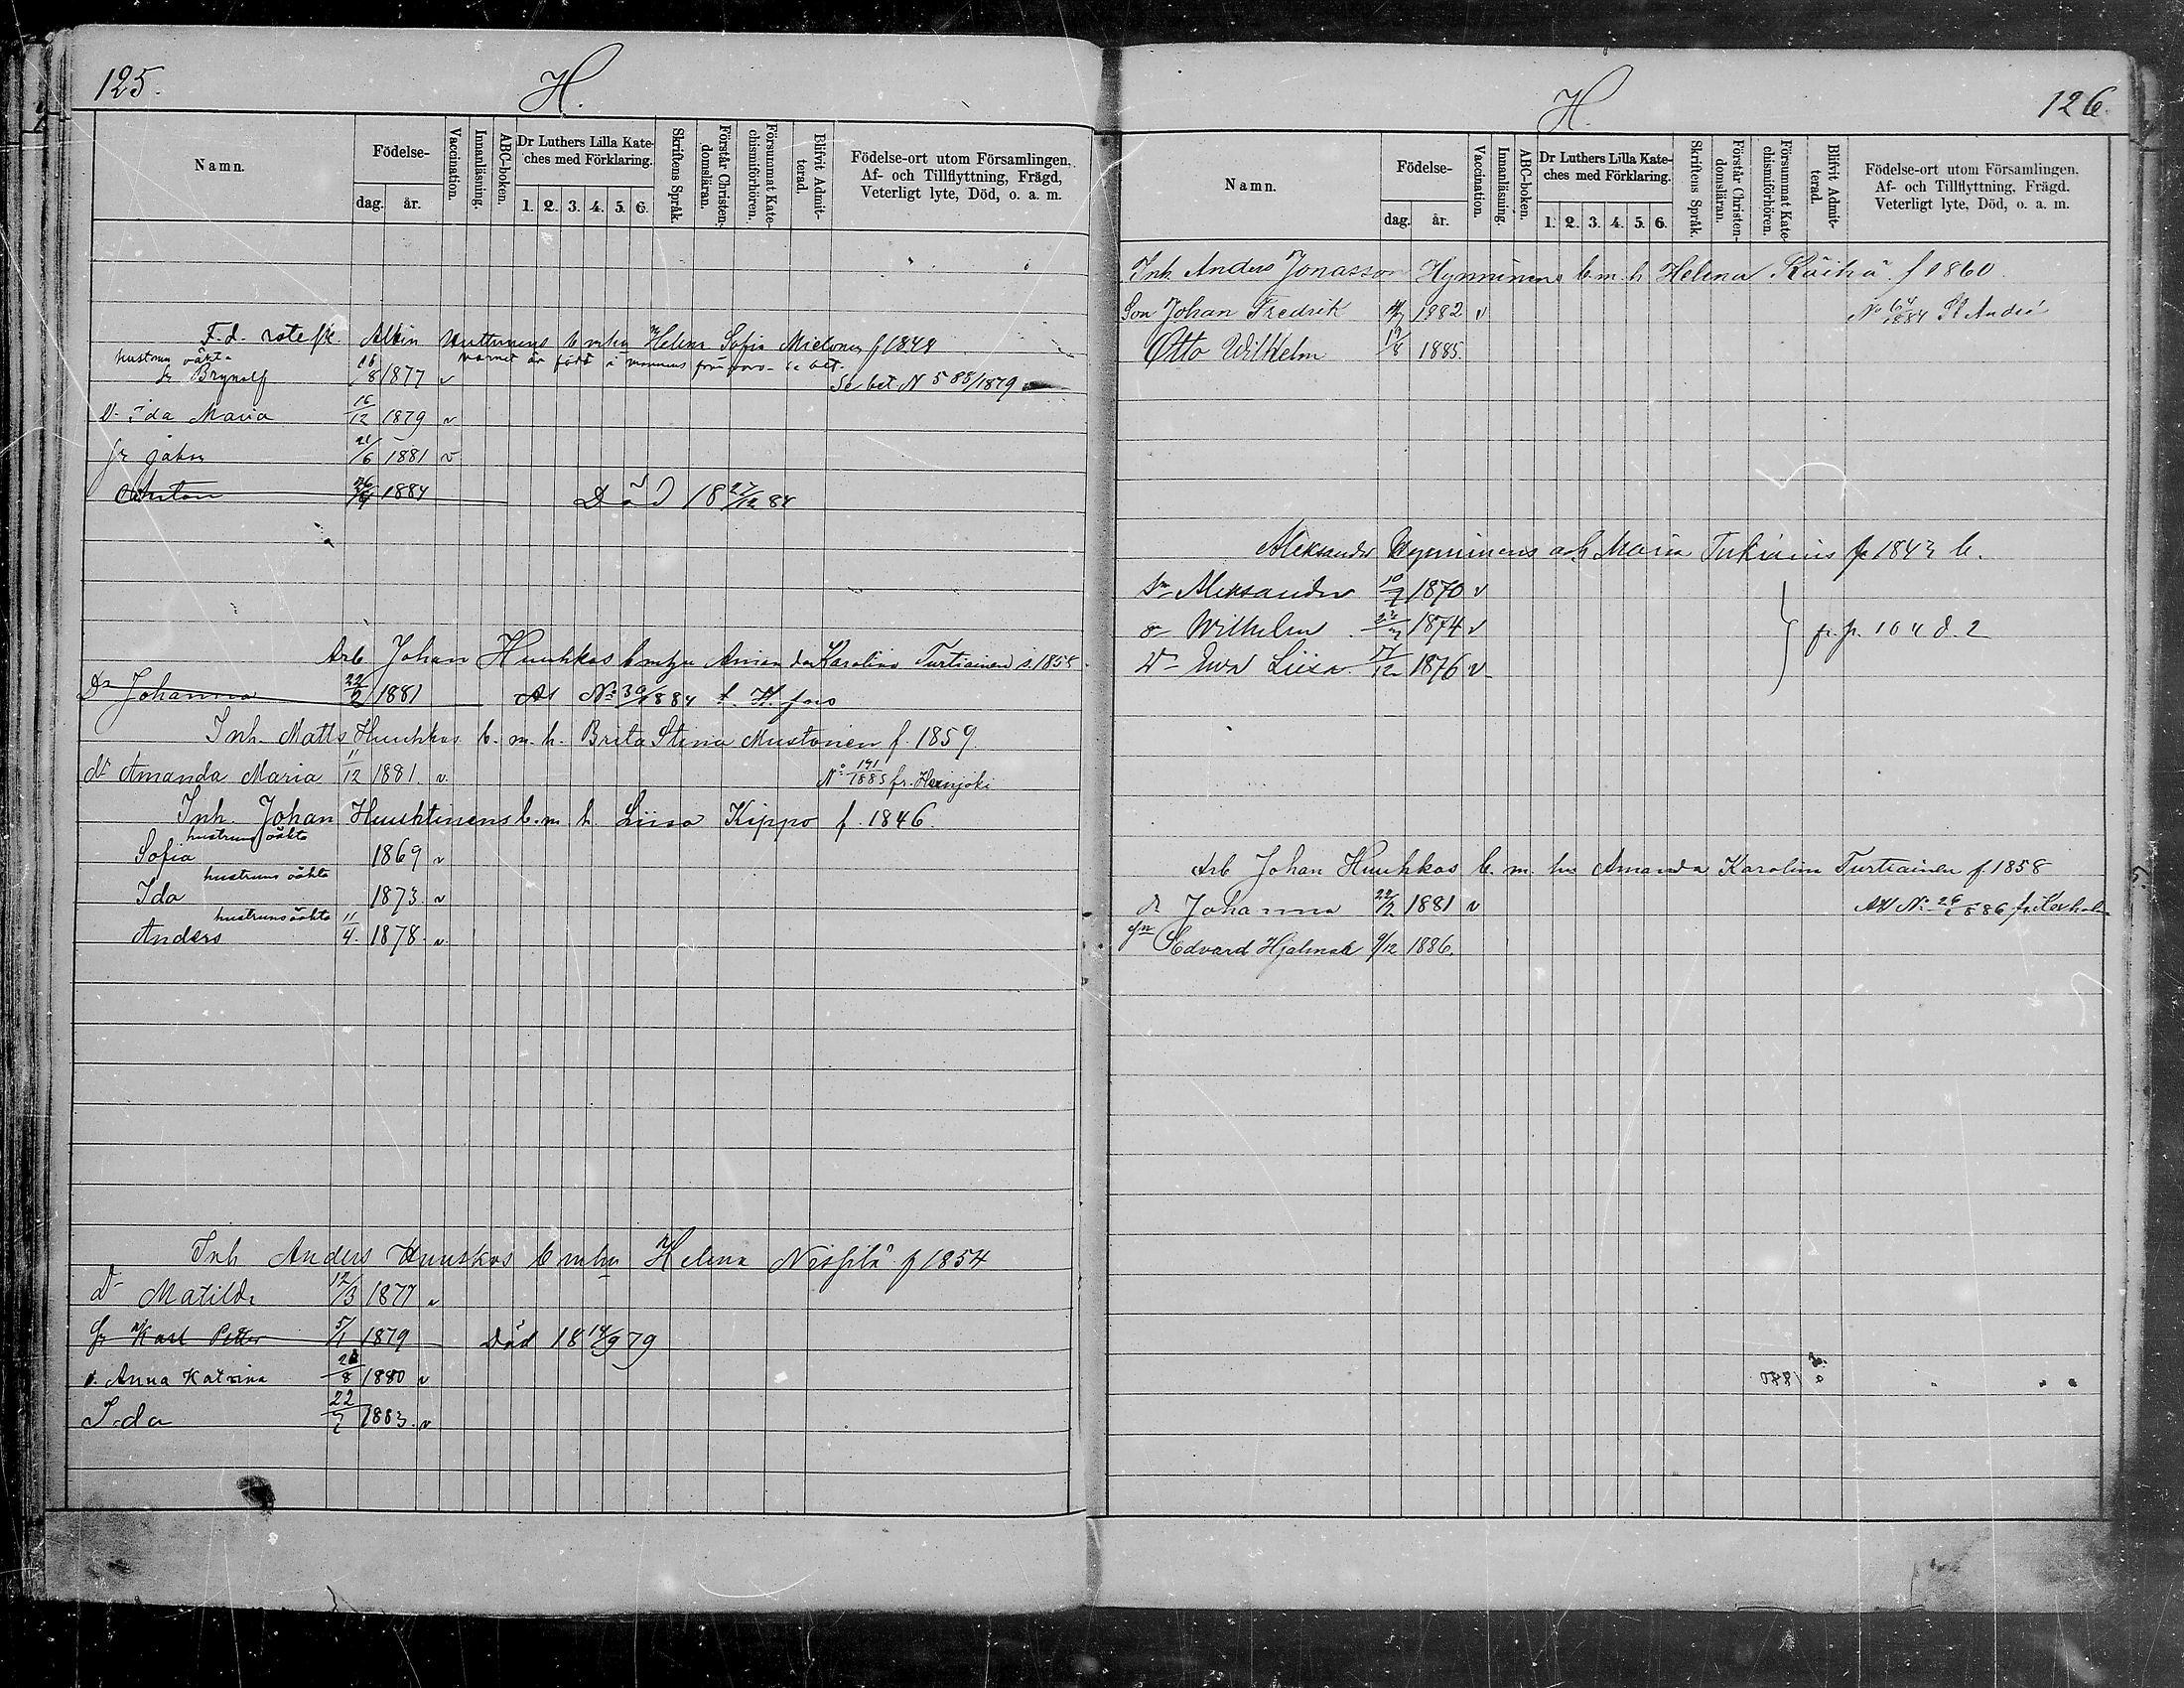 125.
H.
Namn.
Födelse-
dag. år.
Vaccination.
Innanläsning.
ABC-boken.
Dr Luthers Lilla Kate-
ches med Förklaring.
1. 2. 3. 4. 5. 6.
Skriftens Språk.
Förstår Christen-
domsläran.
Försummat Kate-
chismiförhören.
Blifvit Admit-
terad.
Födelse-ort utom Församlingen.
Af- och Tillflyttning, Frägd,
Veterligt lyte, Död, o. a. m.
F.d. rotefk. Albin Huttunens b m hu Helena Sofia Mietonen f 1849
hustrun oäkta
barnet är född i
Brynolf 16/8 1877 v Se bet N 588/1879
Dr Ida Maria 16/12 1879 v
Johan 21/6 1881 v
Anton 1884 Död 18 27/12 84
Arb. Johan Huuhkas b m hu Karolina Turtiainen f. 1858
Dr Johanna 22/2 1881 At No 30/1884 t. H. fors
Inh. Matts Huuhkas b. m. h. Brita Stina Mustonen f. 1859.
dr Amanda Maria 11/12 1881. v. No 191/1885 fr. Heinjoki
Inh. Johan Huuhtinens b. m h. Liisa Kippo f. 1846
hustruns oäkta
Sofia 1869 v
hustruns oäkta
Ida 1873. v
hustruns oäkta
Anders 11/4. 1878. v.
Inh Anders Huuskos b m hu Helena Nissilä f 1854
Dr Matilda 12/3 1877 v
Karl Petter 5/1 1879 Död 18 14/9 79
d. Anna Katrina 1880 v
Ida 22/7 1883. v
H.
126.
Namn.
Födelse-
dag. år.
Vaccination.
Innanläsning.
ABC-boken.
Dr Luthers Lilla Kate-
ches med Förklaring.
1. 2. 3. 4. 5. 6.
Skriftens Språk.
Förstår Christen-
domsläran.
Försummat Kate-
chismiförhören.
Blifvit Admit-
terad.
Födelse-ort utom Församlingen.
Af- och Tillflyttning, Frägd.
Veterligt lyte, Död, o. a. m.
Inh. Anders Jonasson Hynninens b. m. h Helena Räihä f 1860.
Son Johan Fredrik 1882 v No 64/1884 St Andreé
Otto Wilhelm 19/8 1885.
Aleksander Hynninens och Maria Turkiainis f 1843 b.
Aleksander 1870 v
Wilhelm 1874 v fr. p. 104 d. 2
Dr Eva Liisa 17/12 1876 v
Arb Johan Huuhkas b. m. hu Amanda Karolina Turtiainen f. 1858
dr Johanna 22/2 1881 v At No 26/1886 fr Kexholm
Edvard Hjalmar 9/12 1886.